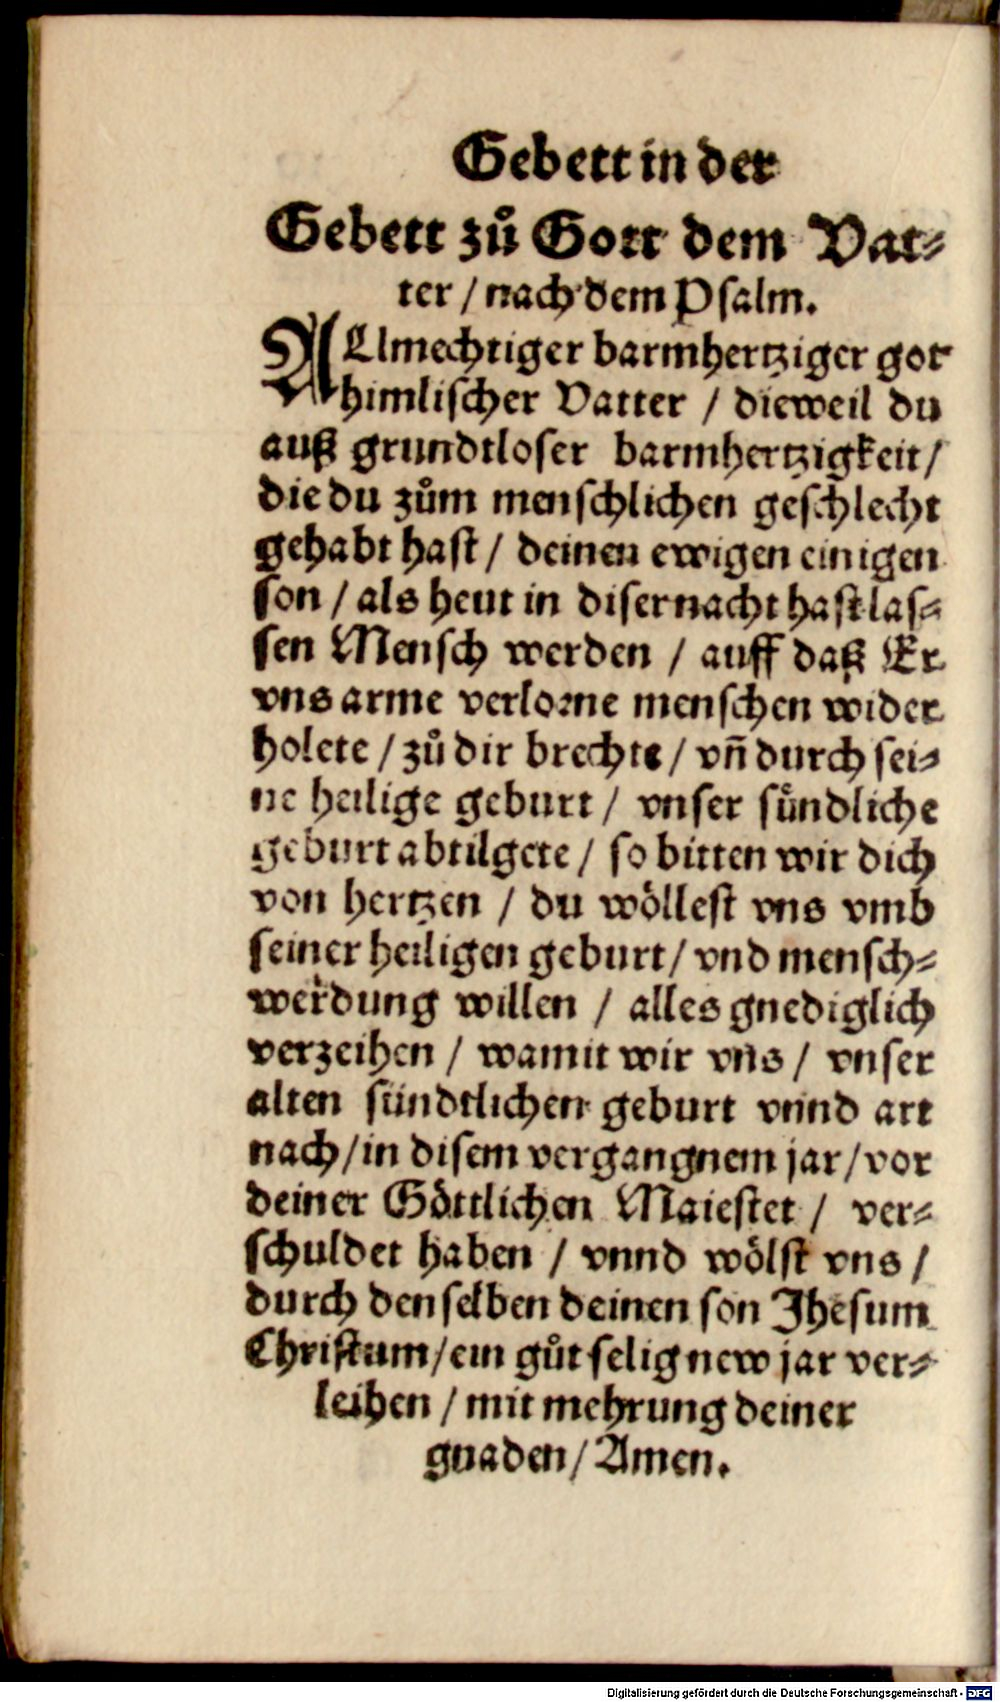 Gebett in der
Gebett zuͦ Gott dem Vat⸗
ter / nach dem Psalm.
ALlmechtiger barmhertziger got
himlischer Vatter / dieweil du
auß grundtloser barmhertzigkeit /
die du zuͦm menschlichen geschlecht
gehabt hast / deinen ewigen einigen
son / als heut in diser nacht hast las⸗
sen Mensch werden / auff daß Er
vns arme verlorne menschen wider
holete / zuͦ dir brechte / vñ durch sei⸗
ne heilige geburt / vnser suͤndliche
geburt abtilgete / so bitten wir dich
von hertzen / du woͤllest vns vmb
seiner heiligen geburt / vnd mensch⸗
werdung willen / alles gnediglich
verzeihen / wamit wir vns / vnser
alten sündtlichen geburt vnnd art
nach / in disem vergangnem jar / vor
deiner Goͤttlichen Maiestet / ver⸗
schuldet haben / vnnd woͤlst vns /
durch denselben deinen son Jhesum
Christum / ein guͦt selig new jar ver⸗
leihen / mit mehrung deiner
gnaden / Amen.
Digitalisierung gefördert durch die Deutsche Forschungsgemeinschaft - DFG